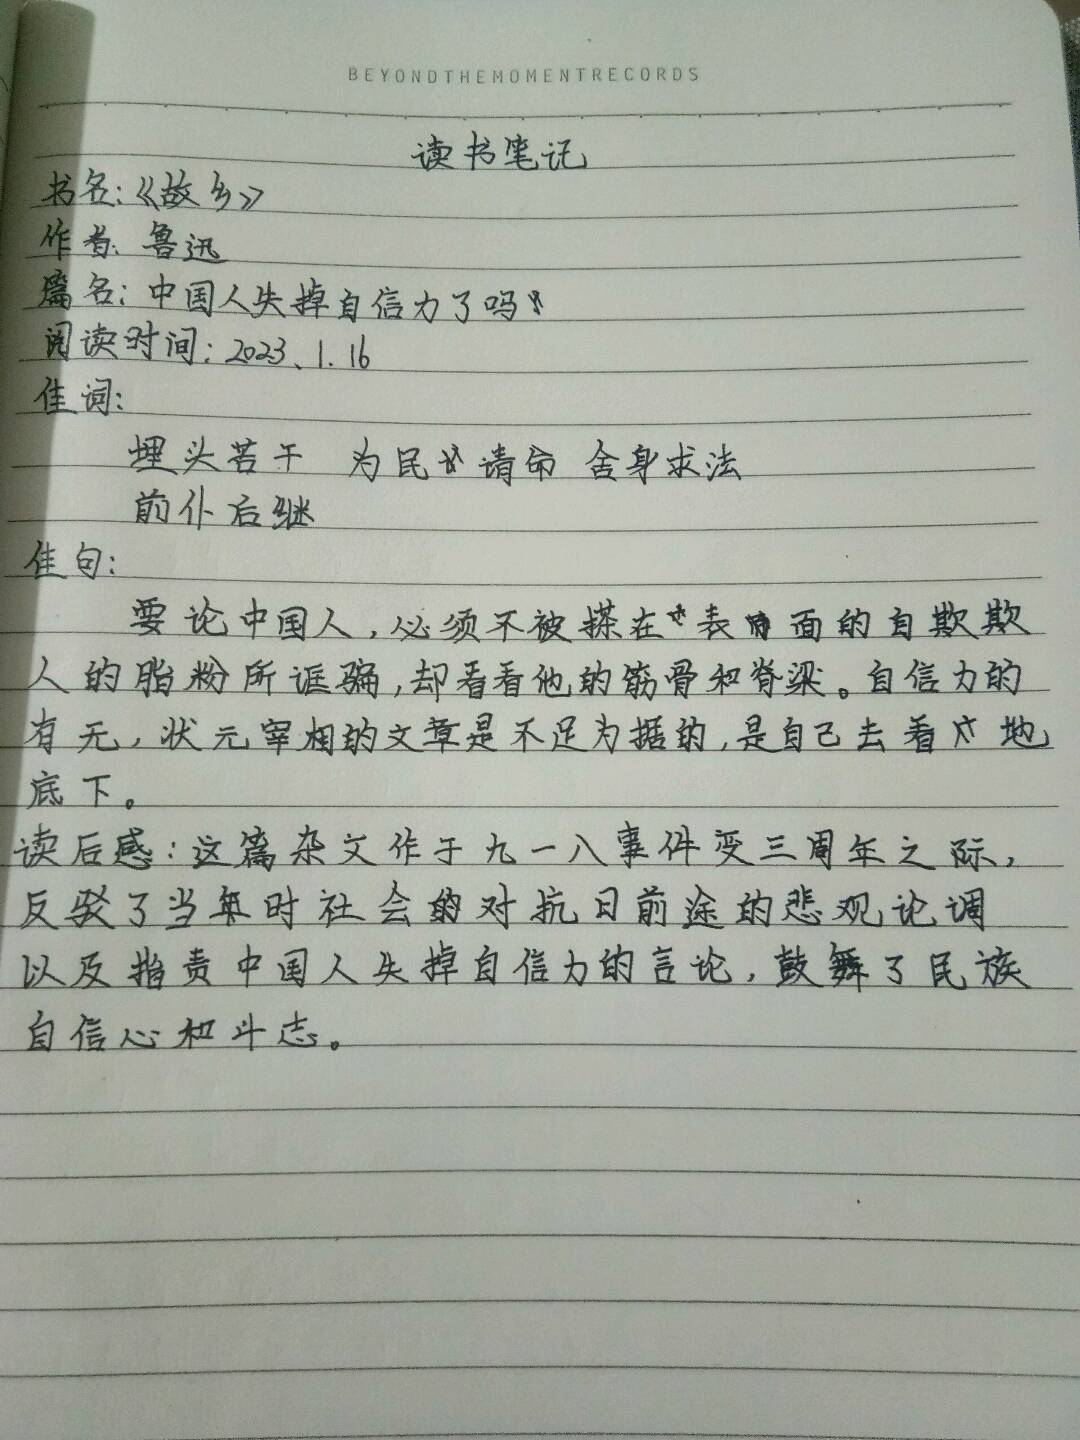 BEYONDTHEMOMENTRECORDS
读书笔记
书名:《故乡》
作者:鲁迅
篇名:中国人失掉自信力了吗
阅读时间:2023、1.16
佳词:
埋头苦干 为民请命 舍身求法
前仆后继
佳句:
要论中国人,必须不被搽在表面的自欺欺
人的脂粉所诓骗,却看看他的筋骨和脊梁。自信力的
有无,状元宰相的文章是不足为据的,是自己去看地
底下。
读后感:这篇杂文作于九一八事件变三周年之际,
反驳了当年时社会的对抗日前途的悲观论调
以及指责中国人失掉自信力的言论,鼓舞了民族
自信心和斗志。